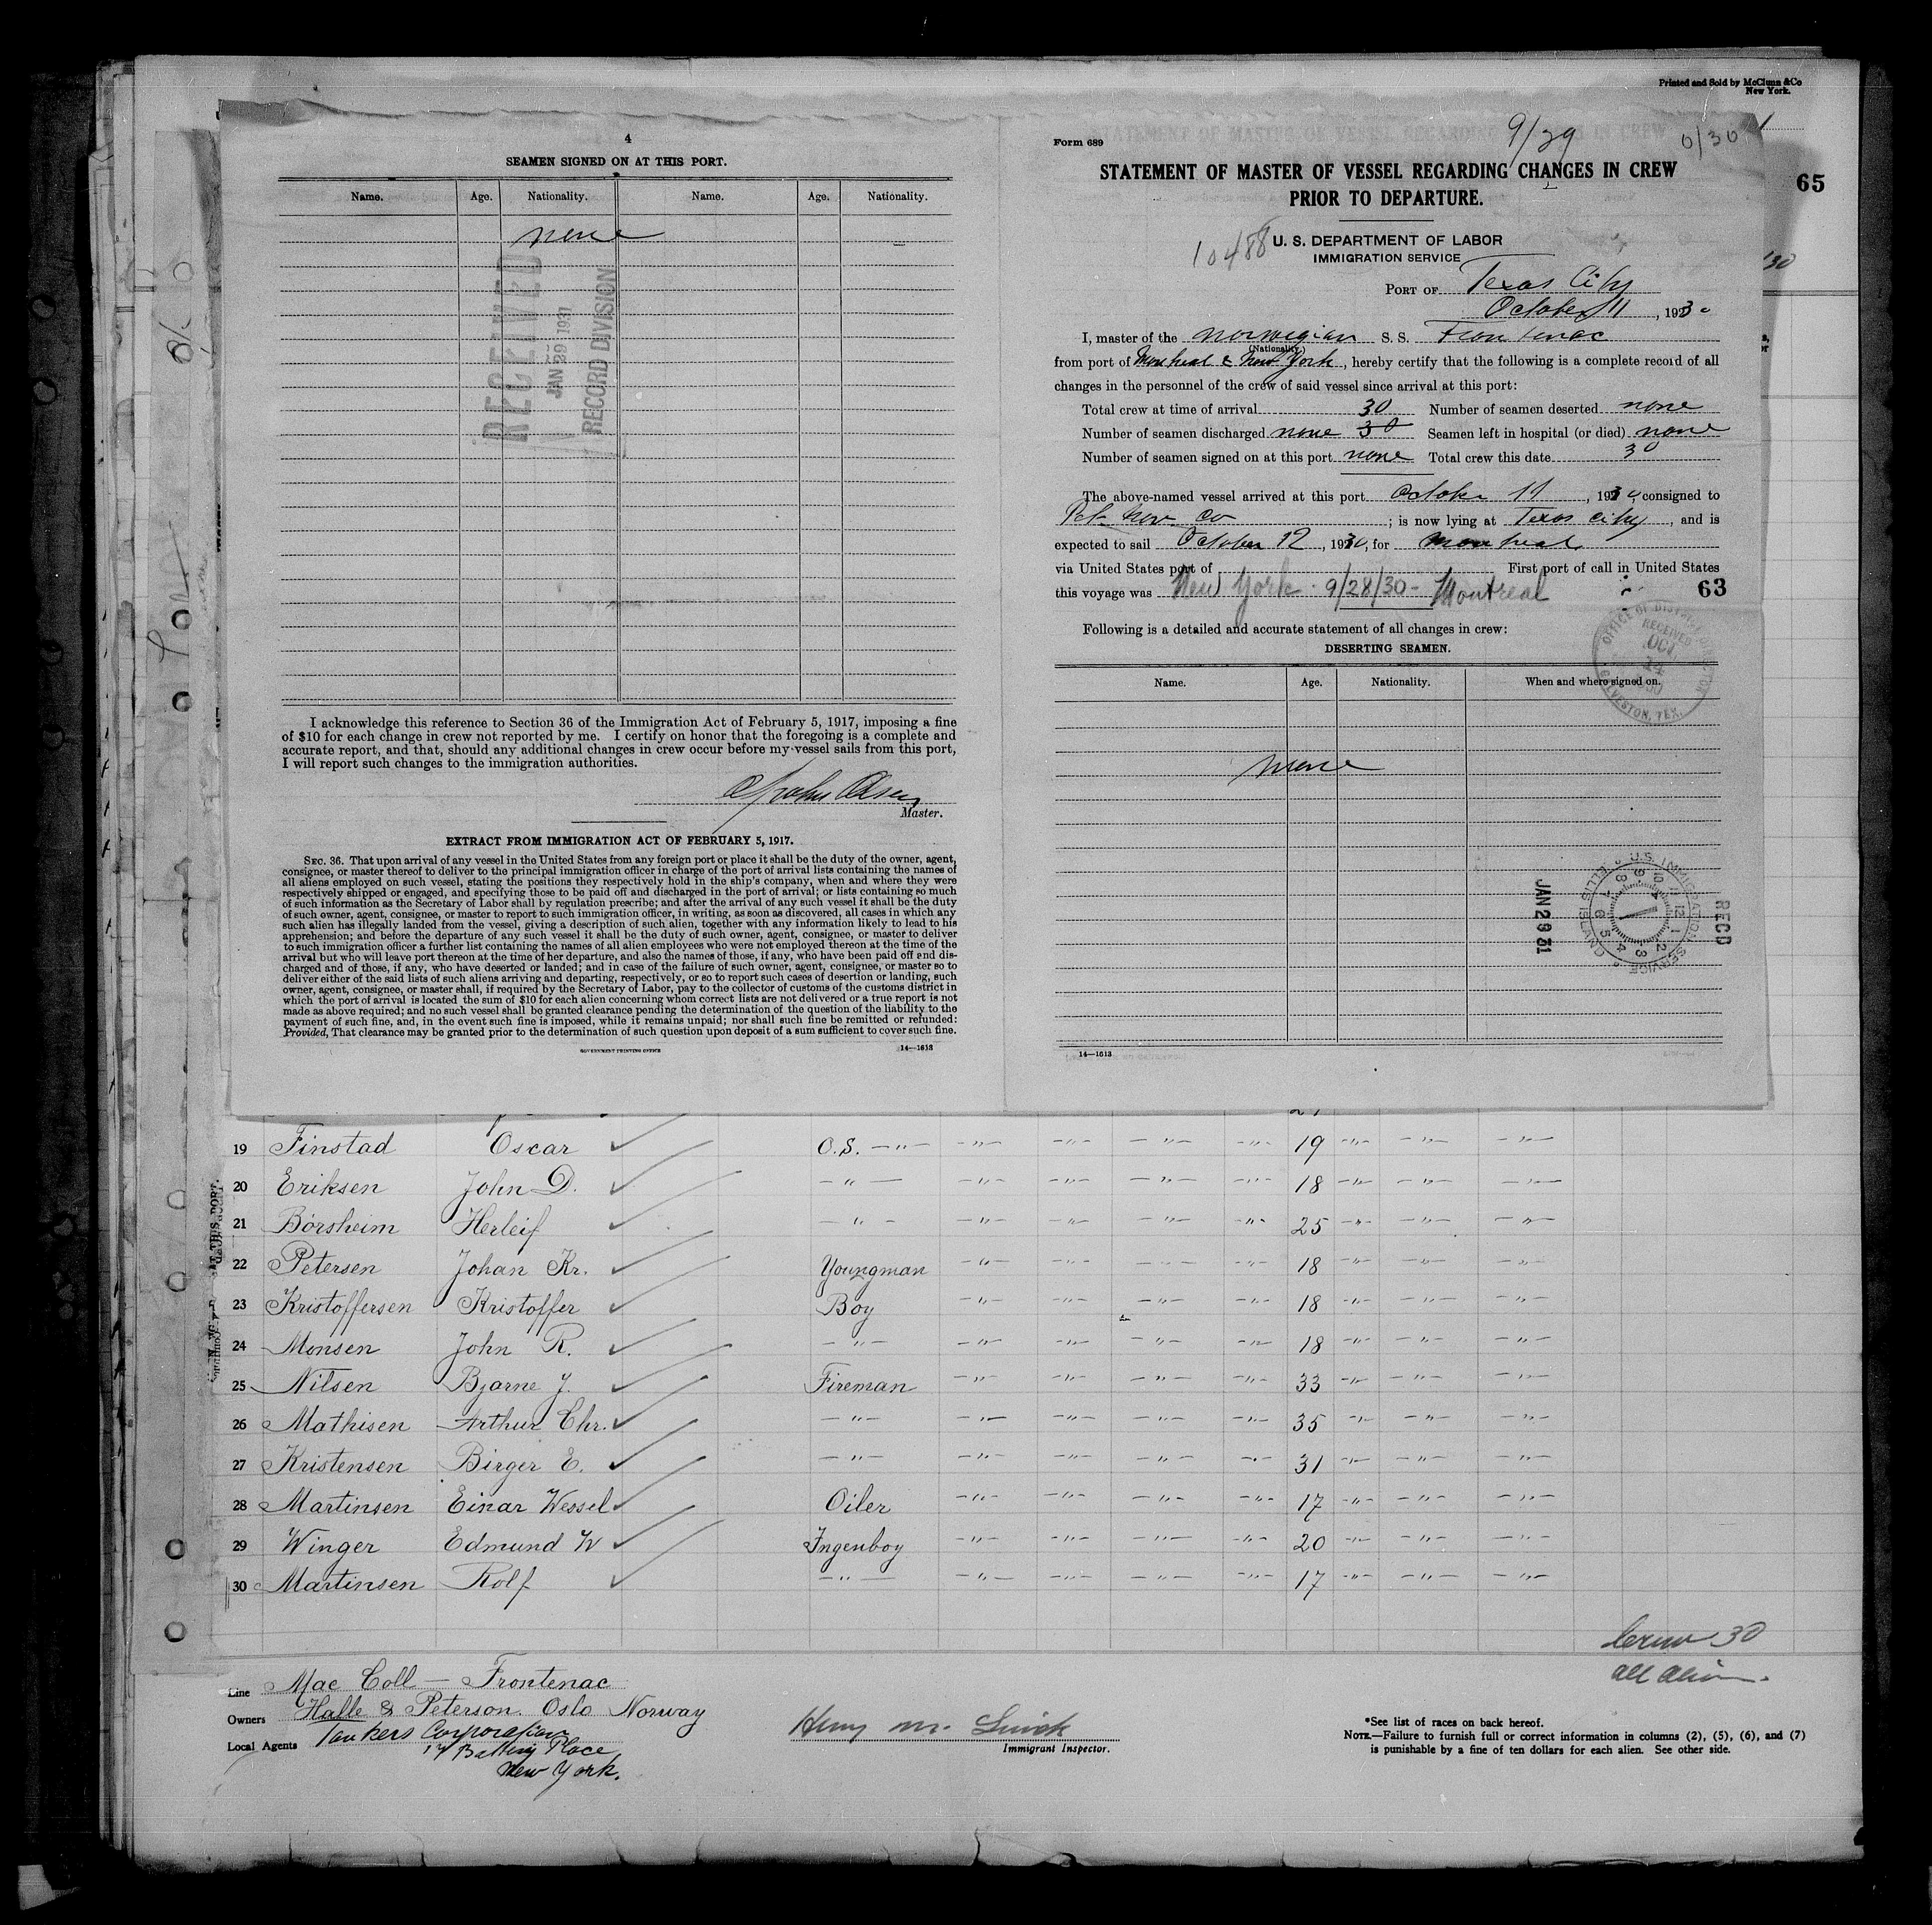 Printed and Sold by McClunn & Co
New York.
65
4
SEAMEN SIGNED ON AT THIS PORT.
Name. Age. Nationality. Name. Age. Nationality.
none
RECEIVED
JAN 29 1931
RECORD DIVISION
I acknowledge this reference to Section 36 of the Immigration Act of February 5, 1917, imposing a fine
of $10 for each change in crew not reported by me. I certify on honor that the foregoing is a complete and
accurate report, and that, should any additional changes in crew occur before my vessel sails from this port,
I will report such changes to the immigration authorities.
Master.
EXTRACT FROM IMMIGRATION ACT OF FEBRUARY 5, 1917.
SEC. 36. That upon arrival of any vessel in the United States from any foreign port or place it shall be the duty of the owner, agent,
consignee, or master thereof to deliver to the principal immigration officer in charge of the port of arrival lists containing the names of
all aliens employed on such vessel, stating the positions they respectively hold in the ship's company, when and where they were
respectively shipped or engaged, and specifying those to be paid off and discharged in the port of arrival; or lists containing so much
of such information as the Secretary of Labor shall by regulation prescribe; and after the arrival of any such vessel it shall be the duty
of such owner, agent, consignee, or master to report to such immigration officer, in writing, as soon as discovered, all cases in which any
such alien has illegally landed from the vessel, giving a description of such alien, together with any information likely to lead to his
apprehension; and before the departure of any such vessel it shall be the duty of such owner, agent, consignee, or master to deliver
to such immigration officer a further list containing the names of all alien employees who were not employed thereon at the time of the
arrival but who will leave port thereon at the time of her departure, and also the names of those, if any, who have been paid off and dis-
charged and of those, if any, who have deserted or landed; and in case of the failure of such owner, agent, consignee, or master so to
deliver either of the said lists of such aliens arriving and departing, respectively, or so to report such cases of desertion or landing, such
owner, agent, consignee, or master shall, if required by the Secretary of Labor, pay to the collector of customs of the customs district in
which the port of arrival is located the sum of $10 for each alien concerning whom correct lists are not delivered or a true report is not
made as above required; and no such vessel shall be granted clearance pending the determination of the question of the liability to the
payment of such fine, and, in the event such fine is imposed, while it remains unpaid; nor shall such fine be remitted or refunded:
Provided, That clearance may be granted prior to the determination of such question upon deposit of a sum sufficient to cover such fine.
GOVERNMENT PRINTING OFFICE 14—1613
9/29
Form 689
STATEMENT OF MASTER OF VESSEL REGARDING CHANGES IN CREW
PRIOR TO DEPARTURE.
10488 U. S. DEPARTMENT OF LABOR
IMMIGRATION SERVICE
PORT OF Texas City
October 11, 1930
I, master of the Norwegian S. S. Frontenac
(Nationality.)
from port of Montreal & New York, hereby certify that the following is a complete record of all
changes in the personnel of the crew of said vessel since arrival at this port:
Total crew at time of arrival 30 Number of seamen deserted none
Number of seamen discharged none 30 Seamen left in hospital (or died) none
Number of seamen signed on at this port none Total crew this date 30
The above-named vessel arrived at this port October 11, 1930, consigned to
Pet Nav Co; is now lying at Texas City, and is
expected to sail October 12, 1930, for Montreal
via United States port of First port of call in United States
this voyage was New York 9/28/30 - Montreal 63
Following is a detailed and accurate statement of all changes in crew:
DESERTING SEAMEN.
OFFICE OF DISTRICT DIRECTOR
RECEIVED
OCT
14
1930
GALVESTON, TEX.
Name. Age. Nationality. When and where signed on.
none
JAN 29 31
U.S. IMMIGRATION SERVICE
ELLIS ISLAND
RECD
14—1613
19 Finstad Oscar O.S. —"— —"— —"— —"— —"— 19 —"— —"— —"—
20 Eriksen John D. —"— —"— —"— —"— —"— 18 —"— —"— —"—
21 Börsheim Herleif —"— —"— —"— —"— —"— 25 —"— —"— —"—
22 Petersen Johan Kr. Youngman —"— —"— —"— —"— 18 —"— —"— —"—
23 Kristoffersen Kristoffer Boy —"— —"— —"— —"— 18 —"— —"— —"—
24 Monsen John R. —"— —"— —"— —"— —"— 18 —"— —"— —"—
25 Nilsen Bjarne J. Fireman —"— —"— —"— —"— 33 —"— —"— —"—
26 Mathisen Arthur Chr. —"— —"— —"— —"— —"— 35 —"— —"— —"—
27 Kristensen Birger E. —"— —"— —"— —"— —"— 31 —"— —"— —"—
28 Martinsen Einar Wessel Oiler —"— —"— —"— —"— 17 —"— —"— —"—
29 Winger Edmund W Ingenboy —"— —"— —"— —"— 20 —"— —"— —"—
30 Martinsen Rolf —"— —"— —"— —"— —"— 17 —"— —"— —"—
Crew 30
all alien.
Line Mac Coll — Frontenac
Owners Halle & Peterson. Oslo Norway
Local Agents Tankers Corporation
17 Battery Place
New York.
Immigrant Inspector.
*See list of races on back hereof.
NOTE.—Failure to furnish full or correct information in columns (2), (5), (6), and (7)
is punishable by a fine of ten dollars for each alien. See other side.